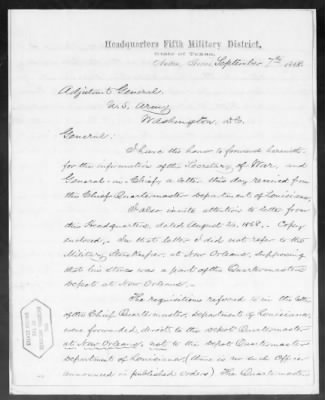 Headquarters Fifth Military District,
State of Texas,
Austin, Texas, September 7th, 1868.
Adjutant General
U.S. Army
Washington, D.C.
General:
I have the honor to forward herewith
for the information of the Secretary of War, and
General-in-Chief, a letter this day received from
the Chief Quartermaster Department of Louisiana.
I also invite attention to letter from
these Headquarters, dated August 24, 1868,. Copy
enclosed,. In that letter I did not refer to the
Military Storekeeper, at New Orleans, supposing
that his stores was a part of the Quartermaster
Depot at New Orleans.
The requisitions referred to in the letter
of the Chief Quartermaster, Department of Louisiana,
were forwarded direct to the Depot Quartermaster
at New Orleans, not to the Depot Quartermaster
Department of Louisiana (there is no such Officer
announced in published orders) The Quartermaster